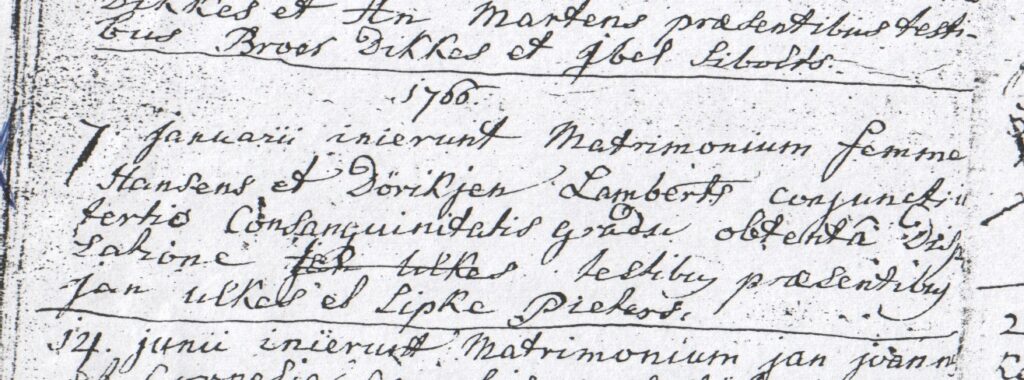 Dikkes et An Martens præsentibus testi-
bus Broer Dikkes et Ybel Sibolts.
1766.
7. januarii inierunt Matrimonium femme
Hansens et Dörikjen Lamberts conjuncti in
tertio Consanguinitatis gradu obtentâ Disp
satione ulkes testibus præsentibus
Jan ulkes et Lipke Pieters.
14. junii inierunt Matrimonium jan joann
et
2